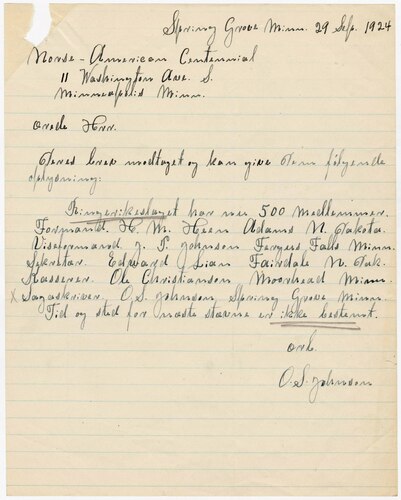 Spring Grove Minn. 29 Sep. 1924
Norse-American Centennial
11 Washington Ave. S.
Minneapolis Minn.
Ærede Herr.
Deres brev modtaget og kan give Dem følgende
oplysning:
Ringerikeslaget har nu 500 medlemmer.
Formand. H. M. Heen Adams N. Dakota.
Viseformand J. P. Johnson Fergus Falls Minn.
Sekretær. Edward J. Lian Fairdale N. Dak.
Kasserer. Ole Christianson Moorhead Minn.
x Sagaskriver. O. S. Johnson, Spring Grove Minn.
Tid og sted for næste stævne er ikke bestemt.
O. S. Johnson